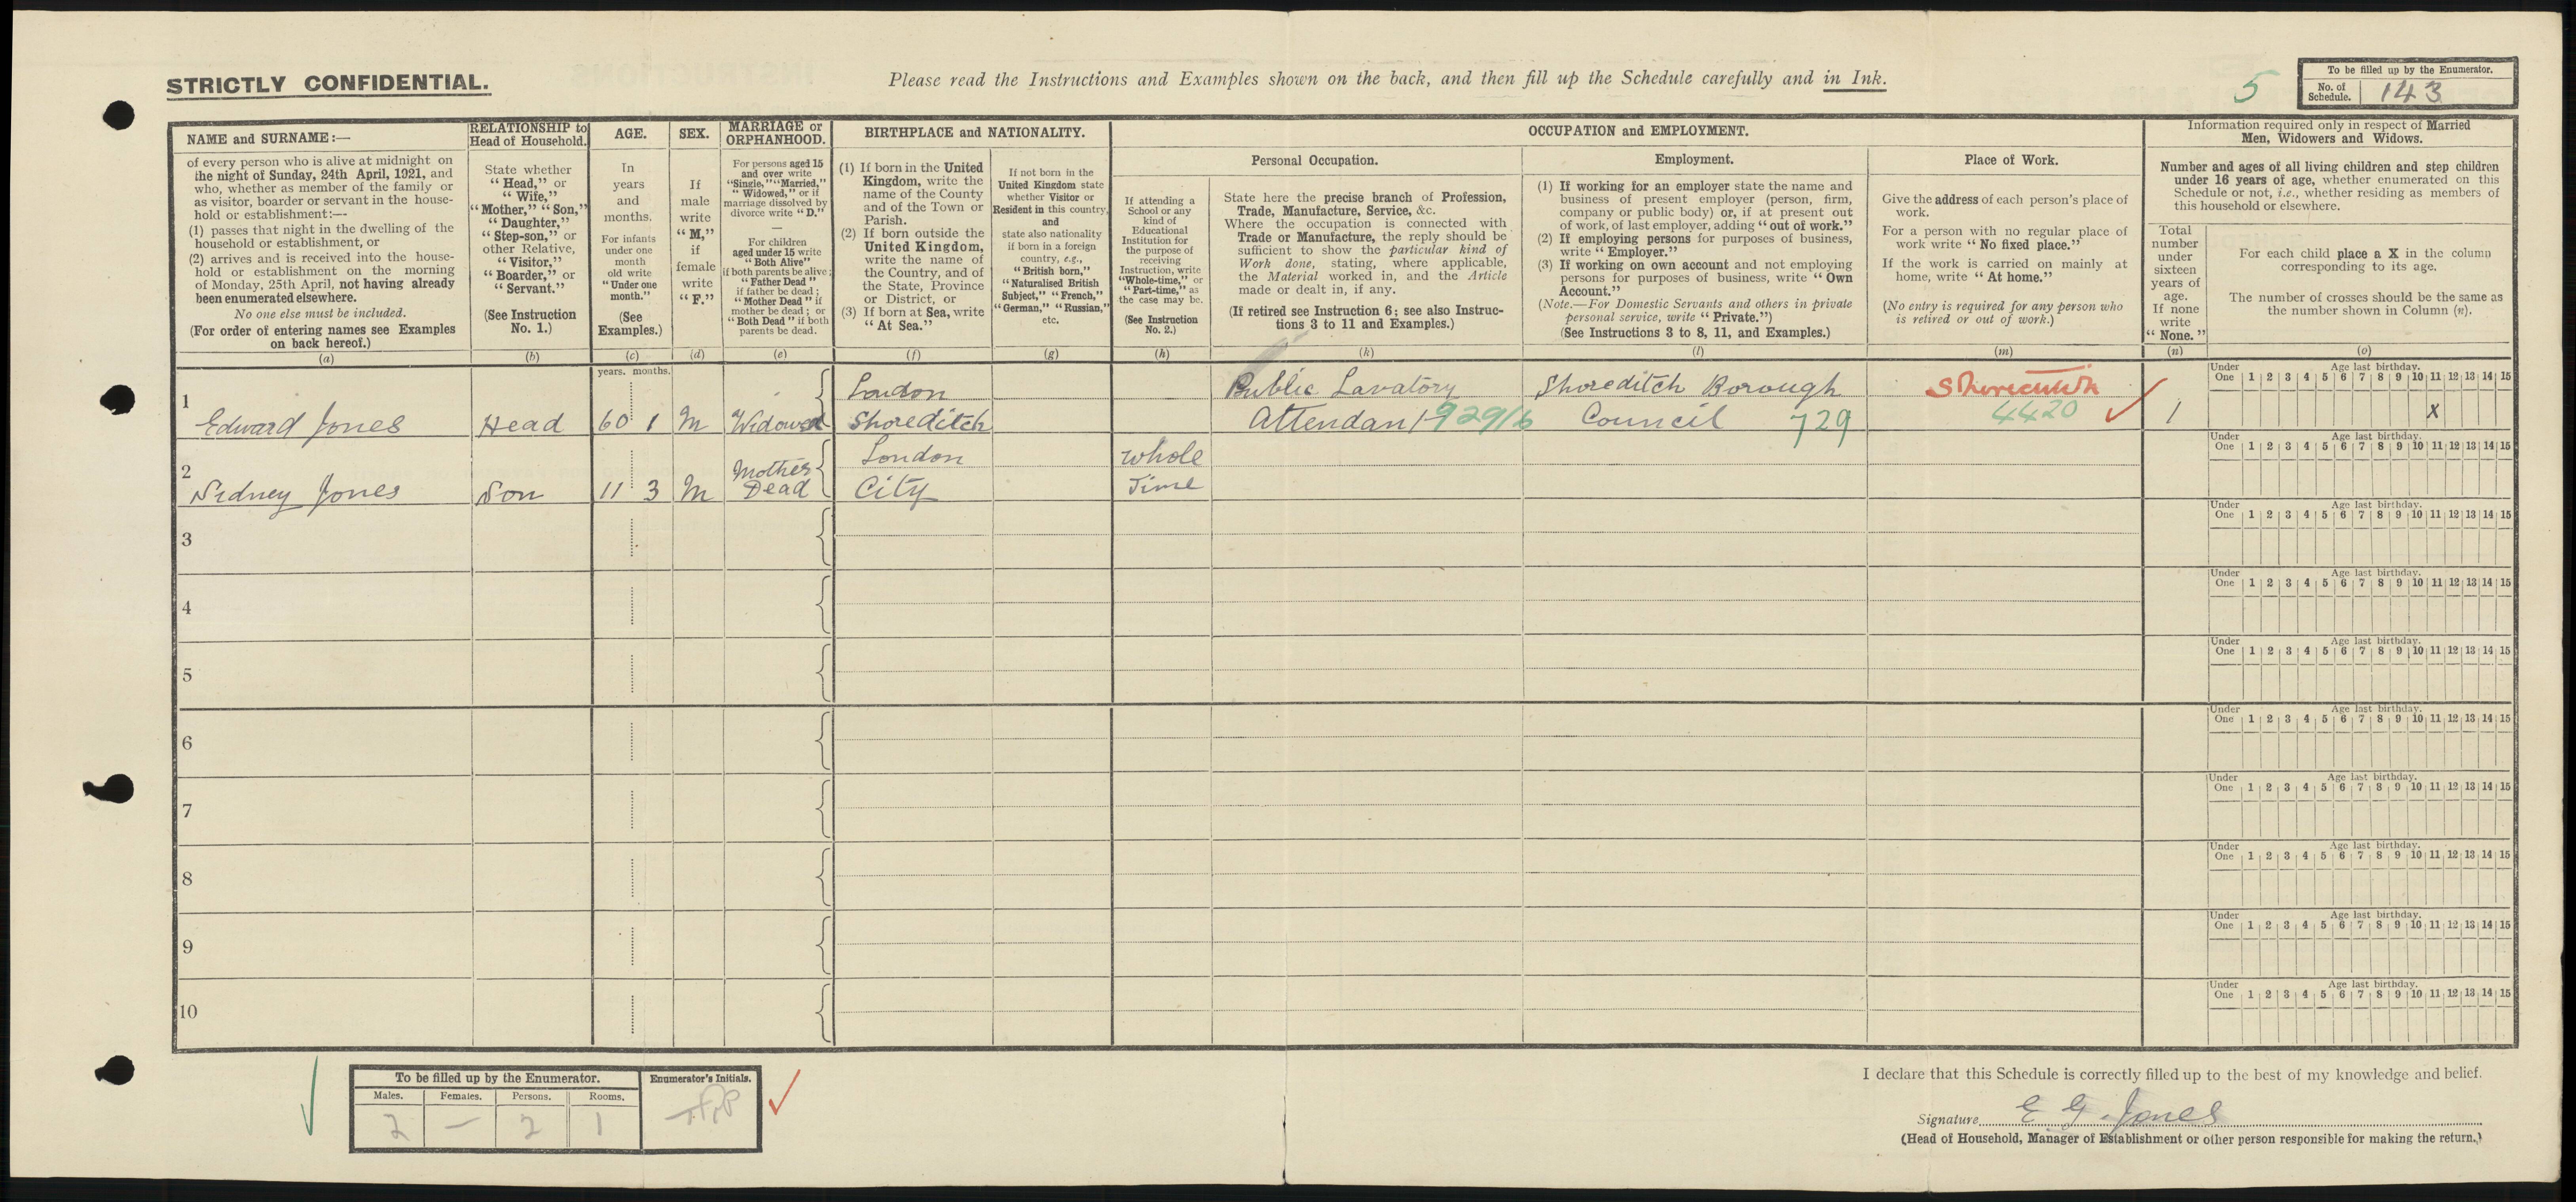 STRICTLY CONFIDENTIAL.
Please read the Instructions and Examples shown on the back, and then fill up the Schedule carefully and in Ink.
5
To be filled up by the Enumerator.
No. of Schedule. 143
NAME and SURNAME:—
of every person who is alive at midnight on
the night of Sunday, 24th April, 1921, and
who, whether as member of the family or
as visitor, boarder or servant in the house-
hold or establishment:—
(1) passes that night in the dwelling of the
household or establishment, or
(2) arrives and is received into the house-
hold or establishment on the morning
of Monday, 25th April, not having already
been enumerated elsewhere.
No one else must be included.
(For order of entering names see Examples
on back hereof.)
(a)
RELATIONSHIP to
Head of Household.
State whether
"Head," or
"Wife,"
"Mother," "Son,"
"Daughter,"
"Step-son," or
other Relative,
"Visitor,"
"Boarder," or
"Servant."
(See Instruction
No. 1.)
(b)
AGE.
In
years
and
months.
For infants
under one
month
old write
"Under one
month."
(See
Examples.)
(c)
SEX.
If
male
write
"M,"
if
female
write
"F."
(d)
MARRIAGE or
ORPHANHOOD.
For persons aged 15
and over write
"Single," "Married,"
"Widowed," or if
marriage dissolved by
divorce write "D."
—
For children
aged under 15 write
"Both Alive"
if both parents be alive;
"Father Dead"
if father be dead;
"Mother Dead" if
mother be dead; or
"Both Dead" if both
parents be dead.
(e)
BIRTHPLACE and NATIONALITY.
(1) If born in the United
Kingdom, write the
name of the County
and of the Town or
Parish.
(2) If born outside the
United Kingdom,
write the name of
the Country, and of
the State, Province
or District, or
(3) If born at Sea, write
"At Sea."
(f)
If not born in the
United Kingdom state
whether Visitor or
Resident in this country,
and
state also nationality
if born in a foreign
country, e.g.,
"British born,"
"Naturalised British
Subject," "French,"
"German," "Russian,"
etc.
(g)
OCCUPATION and EMPLOYMENT.
Personal Occupation.
If attending a
School or any
kind of
Educational
Institution for
the purpose of
receiving
Instruction, write
"Whole-time," or
"Part-time," as
the case may be.
(See Instruction
No. 2.)
(h)
State here the precise branch of Profession,
Trade, Manufacture, Service, &c.
Where the occupation is connected with
Trade or Manufacture, the reply should be
sufficient to show the particular kind of
Work done, stating, where applicable,
the Material worked in, and the Article
made or dealt in, if any.
(If retired see Instruction 6; see also Instruc-
tions 3 to 11 and Examples.)
(k)
Employment.
(1) If working for an employer state the name and
business of present employer (person, firm,
company or public body) or, if at present out
of work, of last employer, adding "out of work."
(2) If employing persons for purposes of business,
write "Employer."
(3) If working on own account and not employing
persons for purposes of business, write "Own
Account."
(Note.—For Domestic Servants and others in private
personal service, write "Private.")
(See Instructions 3 to 8, 11, and Examples.)
(l)
Place of Work.
Give the address of each person's place of
work.
For a person with no regular place of
work write "No fixed place."
If the work is carried on mainly at
home, write "At home."
(No entry is required for any person who
is retired or out of work.)
(m)
Information required only in respect of Married
Men, Widowers and Widows.
Number and ages of all living children and step children
under 16 years of age, whether enumerated on this
Schedule or not, i.e., whether residing as members of
this household or elsewhere.
Total
number
under
sixteen
years of
age.
If none
write
"None."
(n)
For each child place a X in the column
corresponding to its age.
The number of crosses should be the same as
the number shown in Column (n).
(o)
years. months.
Under Age last birthday.
One 1 2 3 4 5 6 7 8 9 10 11 12 13 14 15
1 Edward Jones Head 60 1 M Widowed London Shoreditch Public Lavatory Attendant 929/6 Shoreditch Borough Council 729 Shoreditch 4420 1 X
Under Age last birthday.
One 1 2 3 4 5 6 7 8 9 10 11 12 13 14 15
2 Sidney Jones Son 11 3 M Mother Dead London City Whole Time
Under Age last birthday.
One 1 2 3 4 5 6 7 8 9 10 11 12 13 14 15
3
Under Age last birthday.
One 1 2 3 4 5 6 7 8 9 10 11 12 13 14 15
4
Under Age last birthday.
One 1 2 3 4 5 6 7 8 9 10 11 12 13 14 15
5
Under Age last birthday.
One 1 2 3 4 5 6 7 8 9 10 11 12 13 14 15
6
Under Age last birthday.
One 1 2 3 4 5 6 7 8 9 10 11 12 13 14 15
7
Under Age last birthday.
One 1 2 3 4 5 6 7 8 9 10 11 12 13 14 15
8
Under Age last birthday.
One 1 2 3 4 5 6 7 8 9 10 11 12 13 14 15
9
Under Age last birthday.
One 1 2 3 4 5 6 7 8 9 10 11 12 13 14 15
10
To be filled up by the Enumerator. Enumerator's Initials.
Males. Females. Persons. Rooms.
2 — 2 1
I declare that this Schedule is correctly filled up to the best of my knowledge and belief.
Signature E G. Jones
(Head of Household, Manager of Establishment or other person responsible for making the return.)